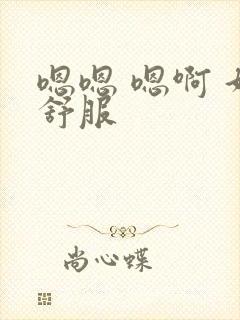 嗯嗯 嗯啊
舒服
尚心蝶